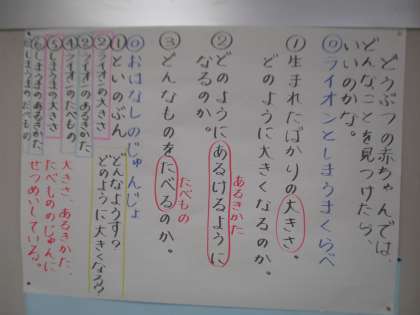 どうぶつの赤ちゃんでは、
どんなことを見つけたら、
いいのかな。
◎ライオンとしまうまくらべ
①生まれたばかりの大きさ。
どのように大きくなるのか。
②どのようにあるけるように
なるのか。
あるきかた
③どんなものをたべるのか。
たべもの
◎おはなしのじゅんじょ
①といのぶん
どんなようす?
どのように大きくなる?
②ライオンの大きさ
③ライオンのあるきかた
④ライオンのたべもの
⑤しまうまの大きさ
⑥しまうまのあるきかた
しまうまのたべもの
大きさ、あるきかた、
たべもののじゅんに
せつめいしている。